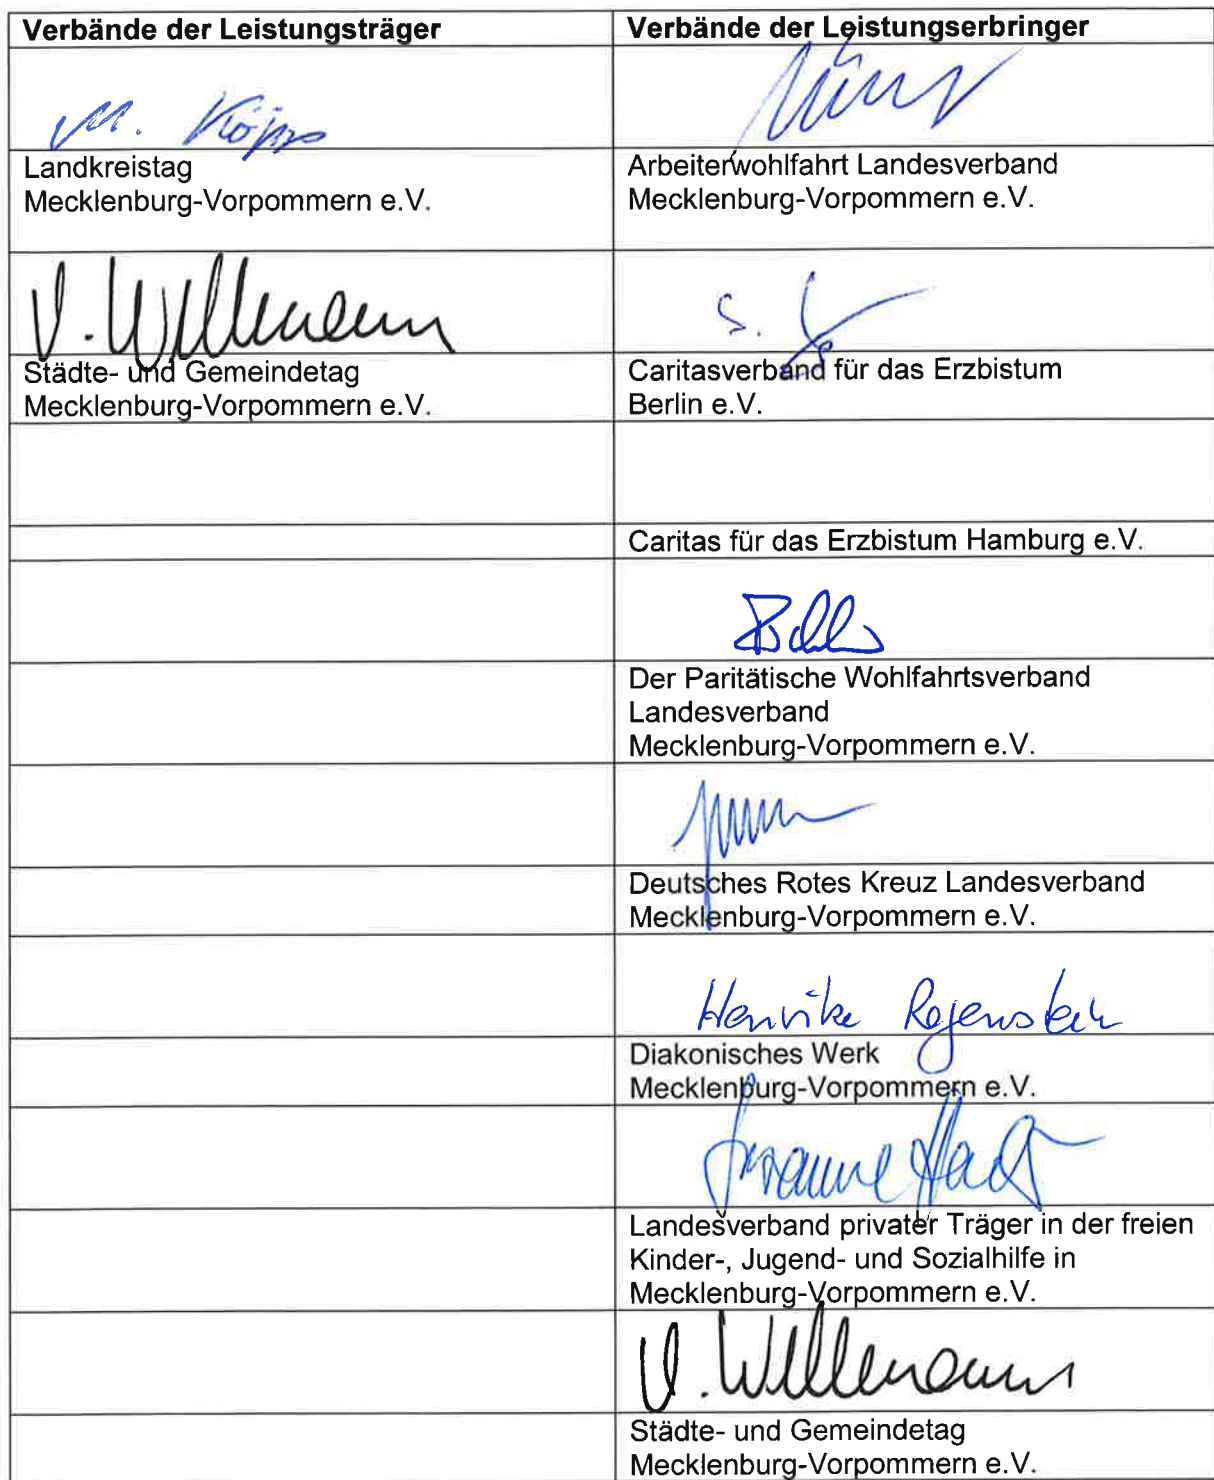 Verbände der Leistungsträger
Verbände der Leistungserbringer
M. Köpp
Landkreistag
Mecklenburg-Vorpommern e.V.
Arbeiterwohlfahrt Landesverband
Mecklenburg-Vorpommern e.V.
V. Willmann
S.
Städte- und Gemeindetag
Mecklenburg-Vorpommern e.V.
Caritasverband für das Erzbistum
Berlin e.V.
Caritas für das Erzbistum Hamburg e.V.
Der Paritätische Wohlfahrtsverband
Landesverband
Mecklenburg-Vorpommern e.V.
Deutsches Rotes Kreuz Landesverband
Mecklenburg-Vorpommern e.V.
Henrike Regenstein
Diakonisches Werk
Mecklenburg-Vorpommern e.V.
Susanne
Landesverband privater Träger in der freien
Kinder-, Jugend- und Sozialhilfe in
Mecklenburg-Vorpommern e.V.
V. Willmann
Städte- und Gemeindetag
Mecklenburg-Vorpommern e.V.